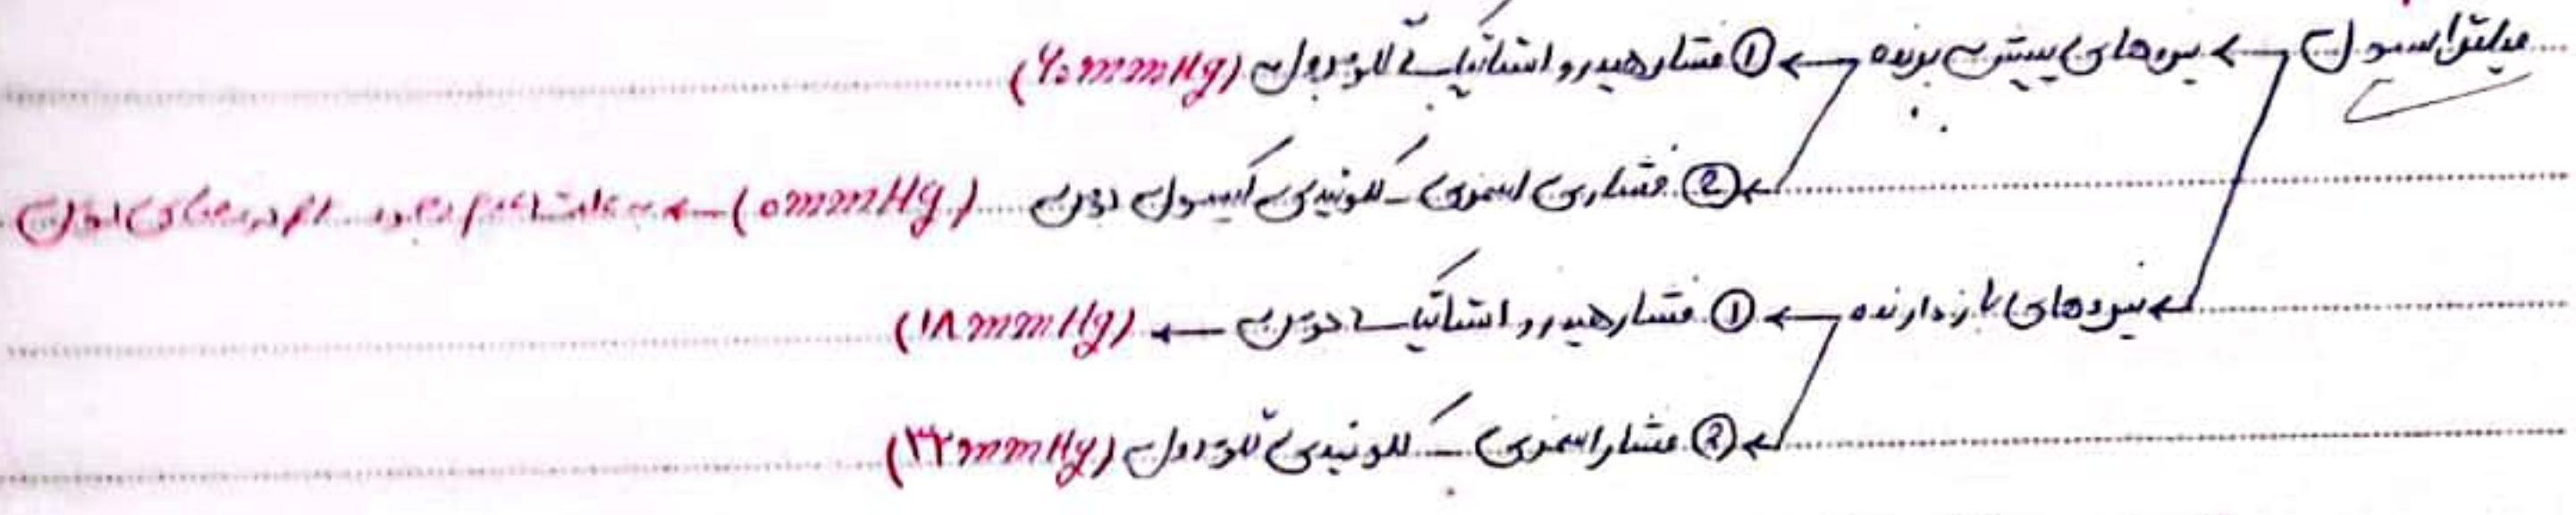 فیلتراسیون ← نیروهای پیش برنده ← ① فشار هیدرواستاتیک گلومرولی (۶۰mmHg)
② فشاری اسمزی - کلوئیدی کپسول بومن (۰mmHg) ← به علت عدم وجود
نیروهای بازدارنده ← ① فشار هیدرواستاتیک بومن ← (۱۸mmHg)
② فشار اسمزی - کلوئیدی گلومرولی (۳۲mmHg)